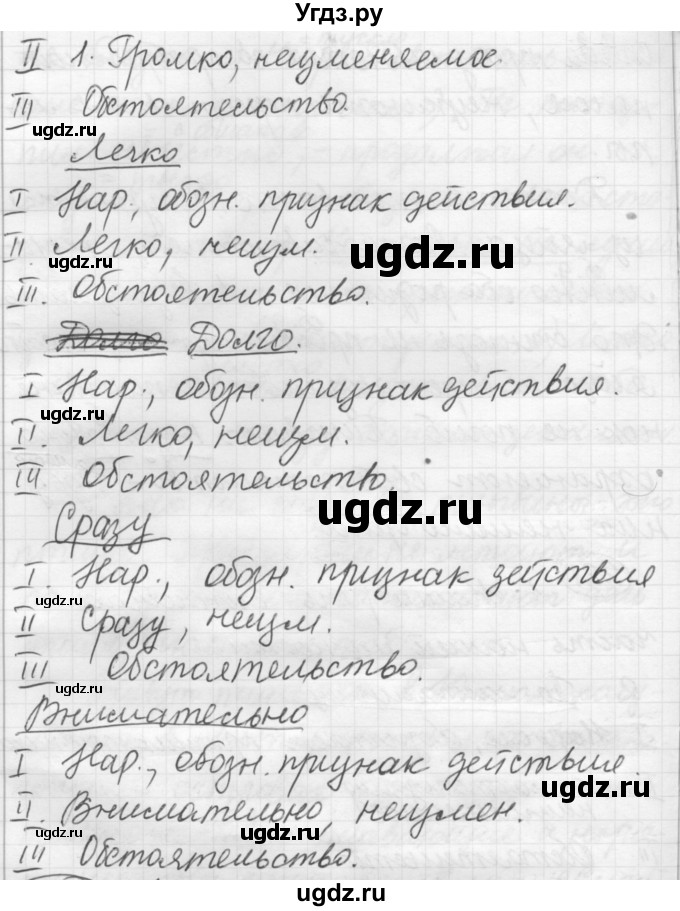 Угдз.ру
II 1. Громко, неизменяемое.
III Обстоятельство.
ugdz.ru
Легко
I Нар., обозн. признак действия.
II. Легко, неизм.
ugdz.ru
ugdz.ru
III. Обстоятельство.
Долго Долго.
I Нар., обозн. признак действия.
ugdz.ru
II. Легко, неизм.
III. Обстоятельство.
ugdz.ru
Сразу
I. Нар., обозн. признак действия
ugdz.ru
II Сразу, неизм.
III Обстоятельство.
ugdz.ru
Внимательно
I Нар., обозн. признак действия.
II. Внимательно, неизмен.
ugdz.ru
ugdz.ru
III Обстоятельство.
ugdz.ru